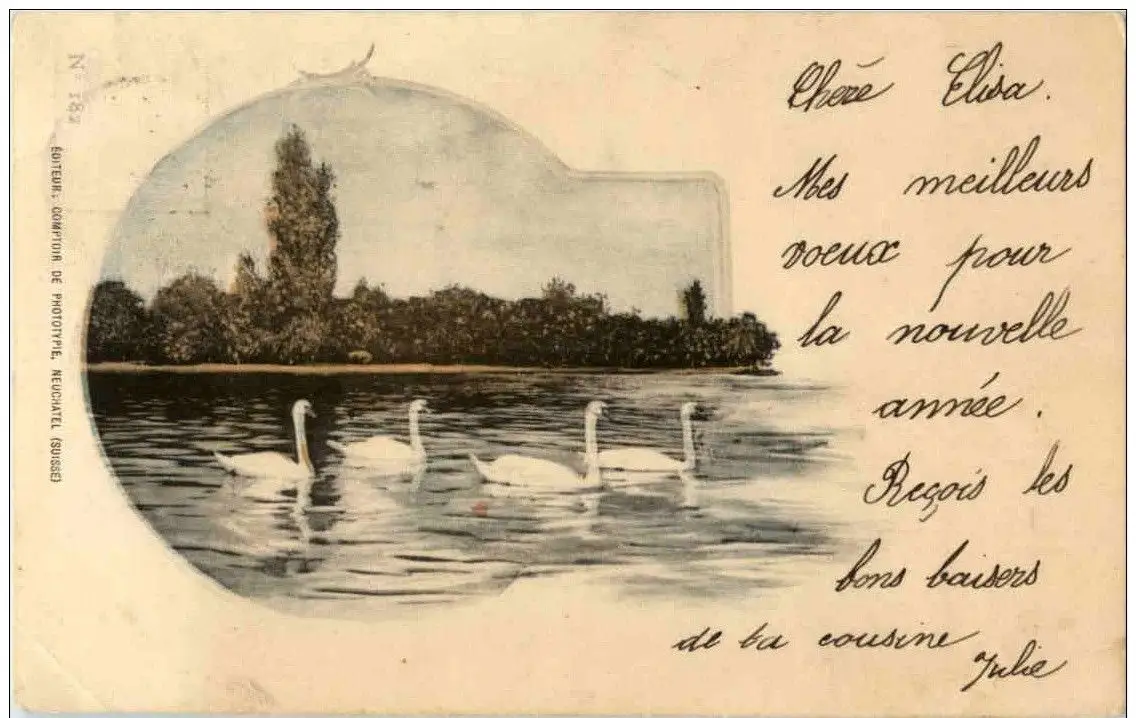 N° 182
ÉDITEUR: COMPTOIR DE PHOTOTYPIE, NEUCHATEL (SUISSE)
Chère Elisa.
Mes meilleurs
voeux pour
la nouvelle
année.
Reçois les
bons baisers
de ta cousine
Julie